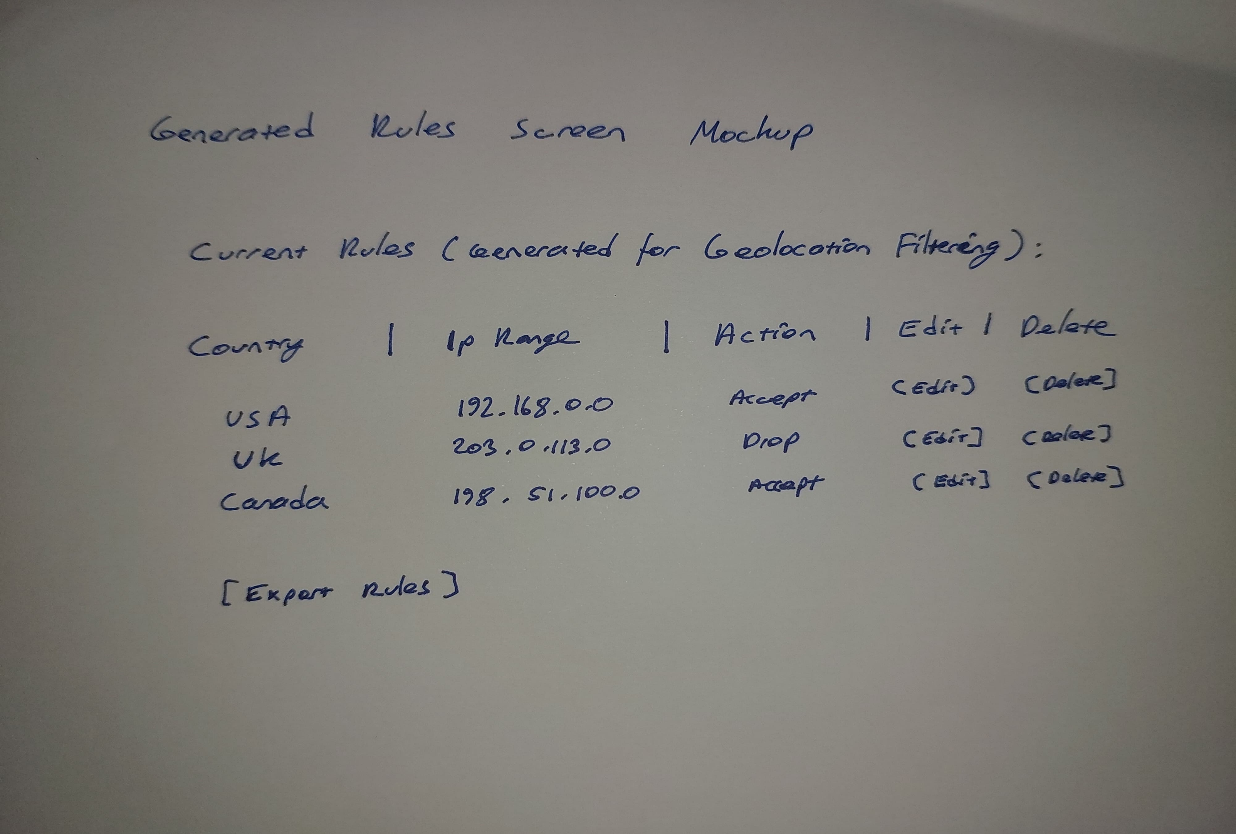 Generated Rules Screen Mockup
Current Rules (Generated for Geolocation Filtering):
Country | Ip Range | Action | Edit | Delete
USA 192.168.0.0 Accept (Edit) (Delete]
UK 203.0.113.0 Drop (Edit] (Delete]
Canada 198.51.100.0 Accept (Edit] (Delete]
[Export Rules]